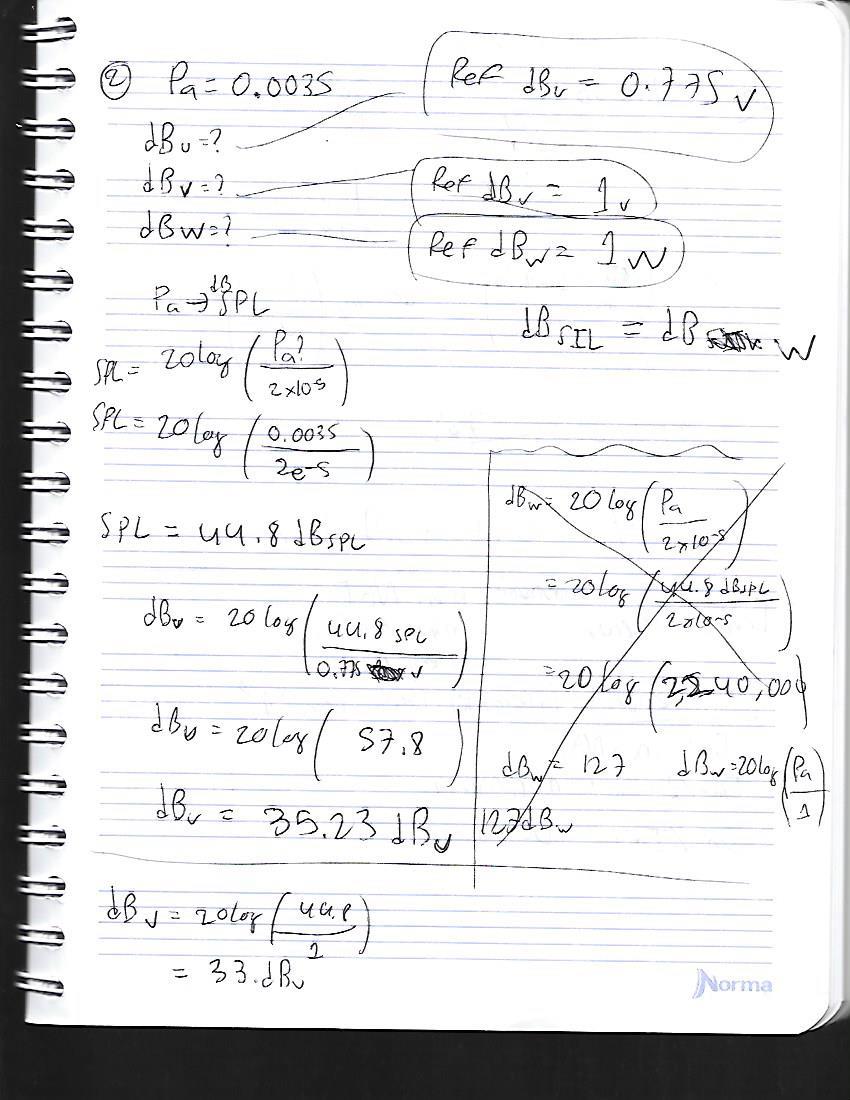 ② Pa = 0.0035
Ref dBu = 0.775 v
dBu=?
dBv=?
dBW=?
Ref dBv = 1v
Ref dBw = 1W
Pa → dB SPL
dBSIL = dB W
SPL = 20 log (Pa? / 2x10-5)
SPL = 20 log (0.0035 / 2e-5)
SPL = 44.8 dBSPL
dBu = 20 log (44.8 SPL / 0.775 v)
dBu = 20 log ( 57.8 )
dBu = 35.23 dBu
dBw = 20 log (Pa / 2x10-5)
= 20 log (44.8 dBSPL / 2x10-5)
= 20 log (2,240,000)
dBw = 127
dBw = 20 log (Pa / 1)
127dBw
dBv = 20 log (44.8 / 1)
= 33.dBv
Norma